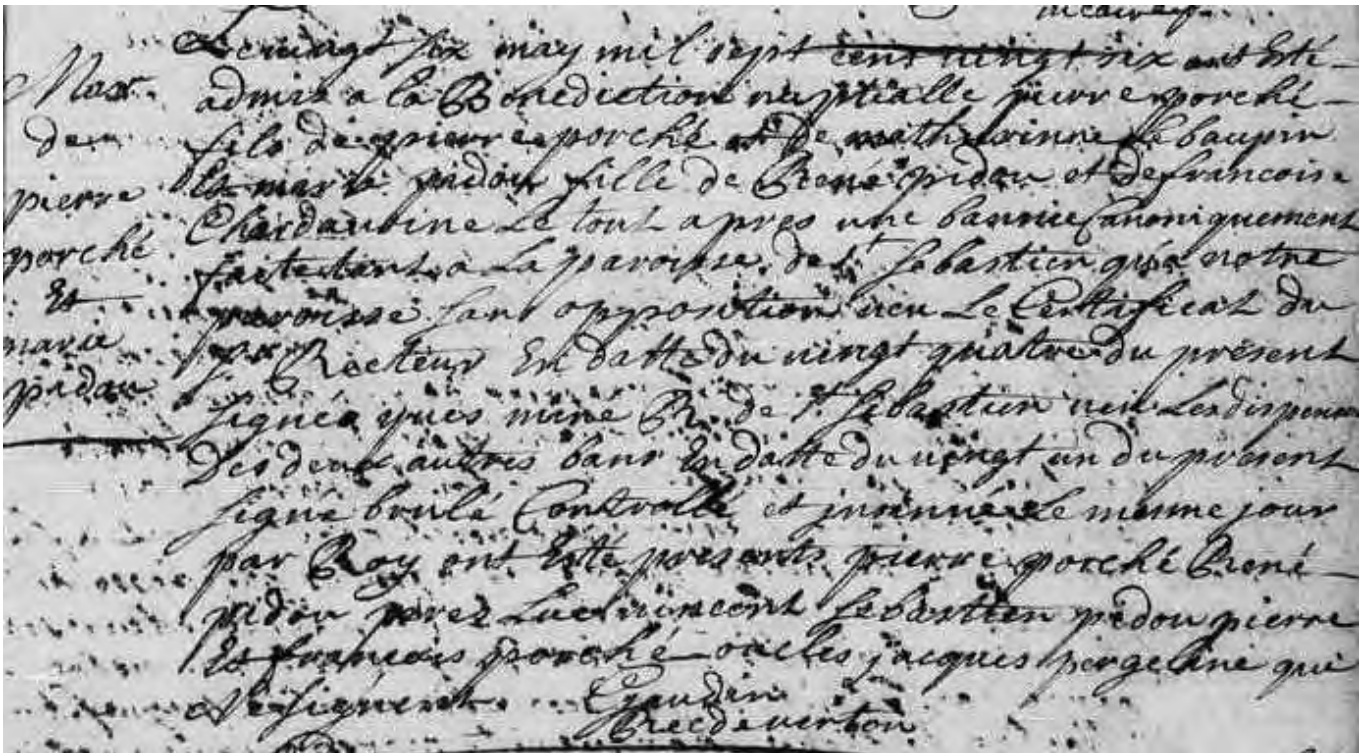 Mar.
de
pierre
porché
Et
marie
pidou
Le vingt six may mil sept cens vingt six ont Esté
admis a la Benediction nuptialle pierre porché
fils de pierre porché et de mathurinne Lebaupin
Et marie pidou fille de René pidou et de francoise
Chardaubine Le tout apres une bannie Canoniquement
faite tant a La paroisse de St Sebastien qu'a notre
paroisse san opposition veu Le Certificat du
Sr Recteur En datte du vingt quatre du present
signé yues miné R. de St Sebastien veu Les dispenses
Des deux autres bans En datte du vingt un du present
signé brulé Controllé et insinué Le mesme jour
par Roy ont Esté presents pierre porché René
pidou perez Luc vincent Sebastien pidou pierre
Et francois porché oncles jacques pergeline qui
Ne signent Gaudin
Rec de vertou